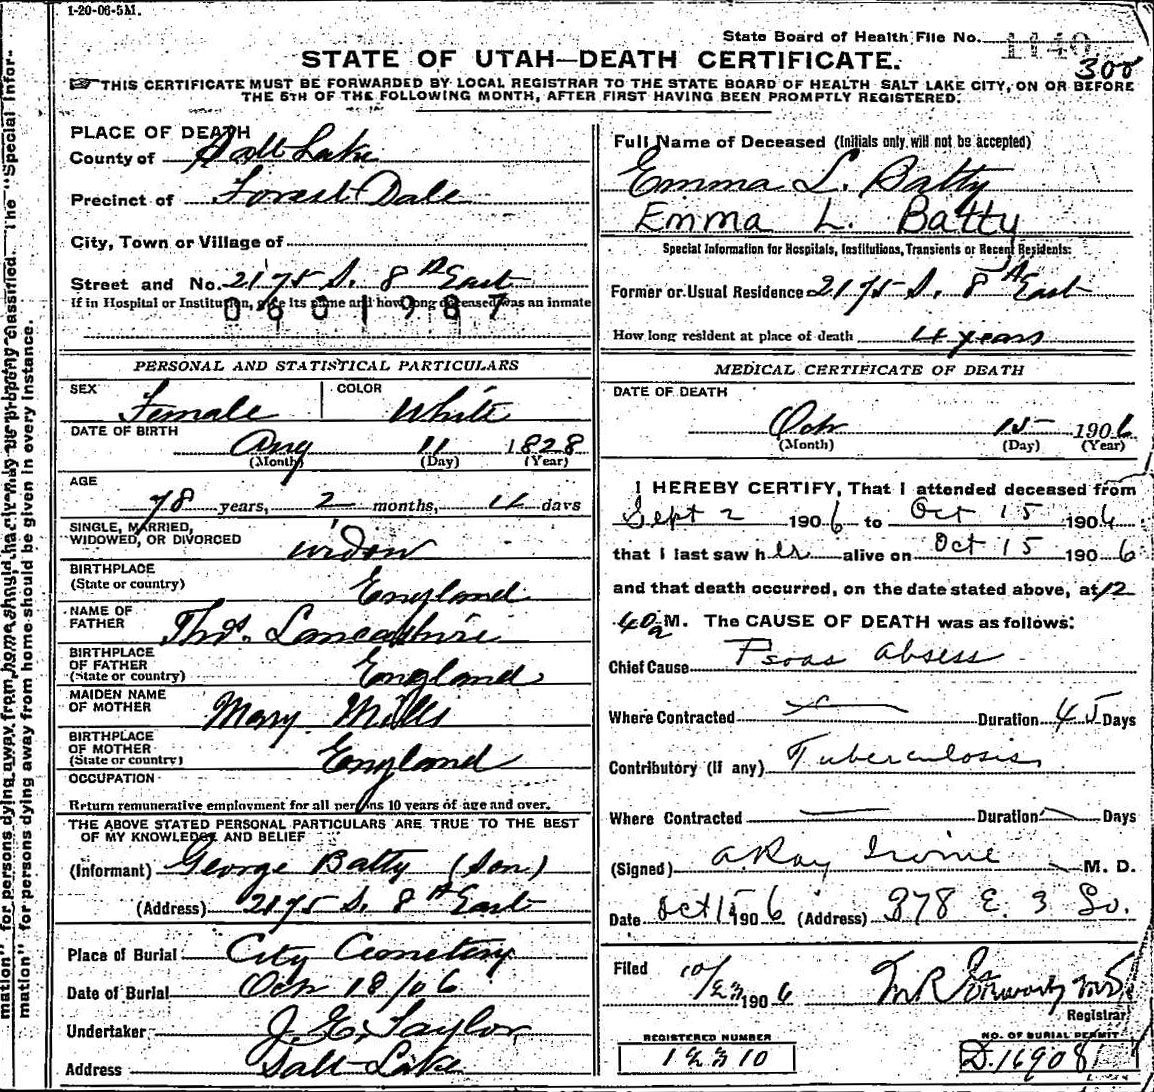 1-20-06-5M.
State Board of Health File No. 1140
300
STATE OF UTAH—DEATH CERTIFICATE.
THIS CERTIFICATE MUST BE FORWARDED BY LOCAL REGISTRAR TO THE STATE BOARD OF HEALTH SALT LAKE CITY, ON OR BEFORE
THE 5TH OF THE FOLLOWING MONTH, AFTER FIRST HAVING BEEN PROMPTLY REGISTERED.
PLACE OF DEATH
County of Salt Lake
Precinct of Forest Dale
City, Town or Village of
Street and No. 2175 S. 8th East
If in Hospital or Institution, give its name and how long deceased was an inmate
0601987
PERSONAL AND STATISTICAL PARTICULARS
SEX Female COLOR White
DATE OF BIRTH
Aug 11 1828
(Month) (Day) (Year)
AGE
78 years, 2 months, 4 days
SINGLE, MARRIED,
WIDOWED, OR DIVORCED widow
BIRTHPLACE
(State or country) England
NAME OF
FATHER Thos. Lancashire
BIRTHPLACE
OF FATHER
(State or country) England
MAIDEN NAME
OF MOTHER Mary Mills
BIRTHPLACE
OF MOTHER
(State or country) England
OCCUPATION
Return remunerative employment for all persons 10 years of age and over.
THE ABOVE STATED PERSONAL PARTICULARS ARE TRUE TO THE BEST
OF MY KNOWLEDGE AND BELIEF
(Informant) George Batty (Son)
(Address) 2175 S. 8th East
Place of Burial City Cemetery
Date of Burial Oct 18/06
Undertaker J. E. Taylor
Address Salt Lake
Full Name of Deceased (Initials only will not be accepted)
Emma L. Batty
Emma L. Batty
Special Information for Hospitals, Institutions, Transients or Recent Residents:
Former or Usual Residence 2175 S. 8th East
How long resident at place of death 4 years
MEDICAL CERTIFICATE OF DEATH
DATE OF DEATH
Oct 15 1906
(Month) (Day) (Year)
I HEREBY CERTIFY, That I attended deceased from
Sept 2 1906 to Oct 15 1906
that I last saw her alive on Oct 15 1906
and that death occurred, on the date stated above, at 12
40 a M. The CAUSE OF DEATH was as follows:
Chief Cause Psoas Absess
Where Contracted Duration 45 Days
Contributory (if any) Tuberculosis
Where Contracted Duration Days
(Signed) A Ray Irvine M. D.
Date Oct 15 1906 (Address) 878 E. 3 So.
Filed 10/23 1906 M.D.
Registrar
REGISTERED NUMBER
12310
NO. OF BURIAL PERMIT
D.16908
mation" for persons dying away from home should
The "Special Infor-
mation" for persons dying away from home should be given in every instance.